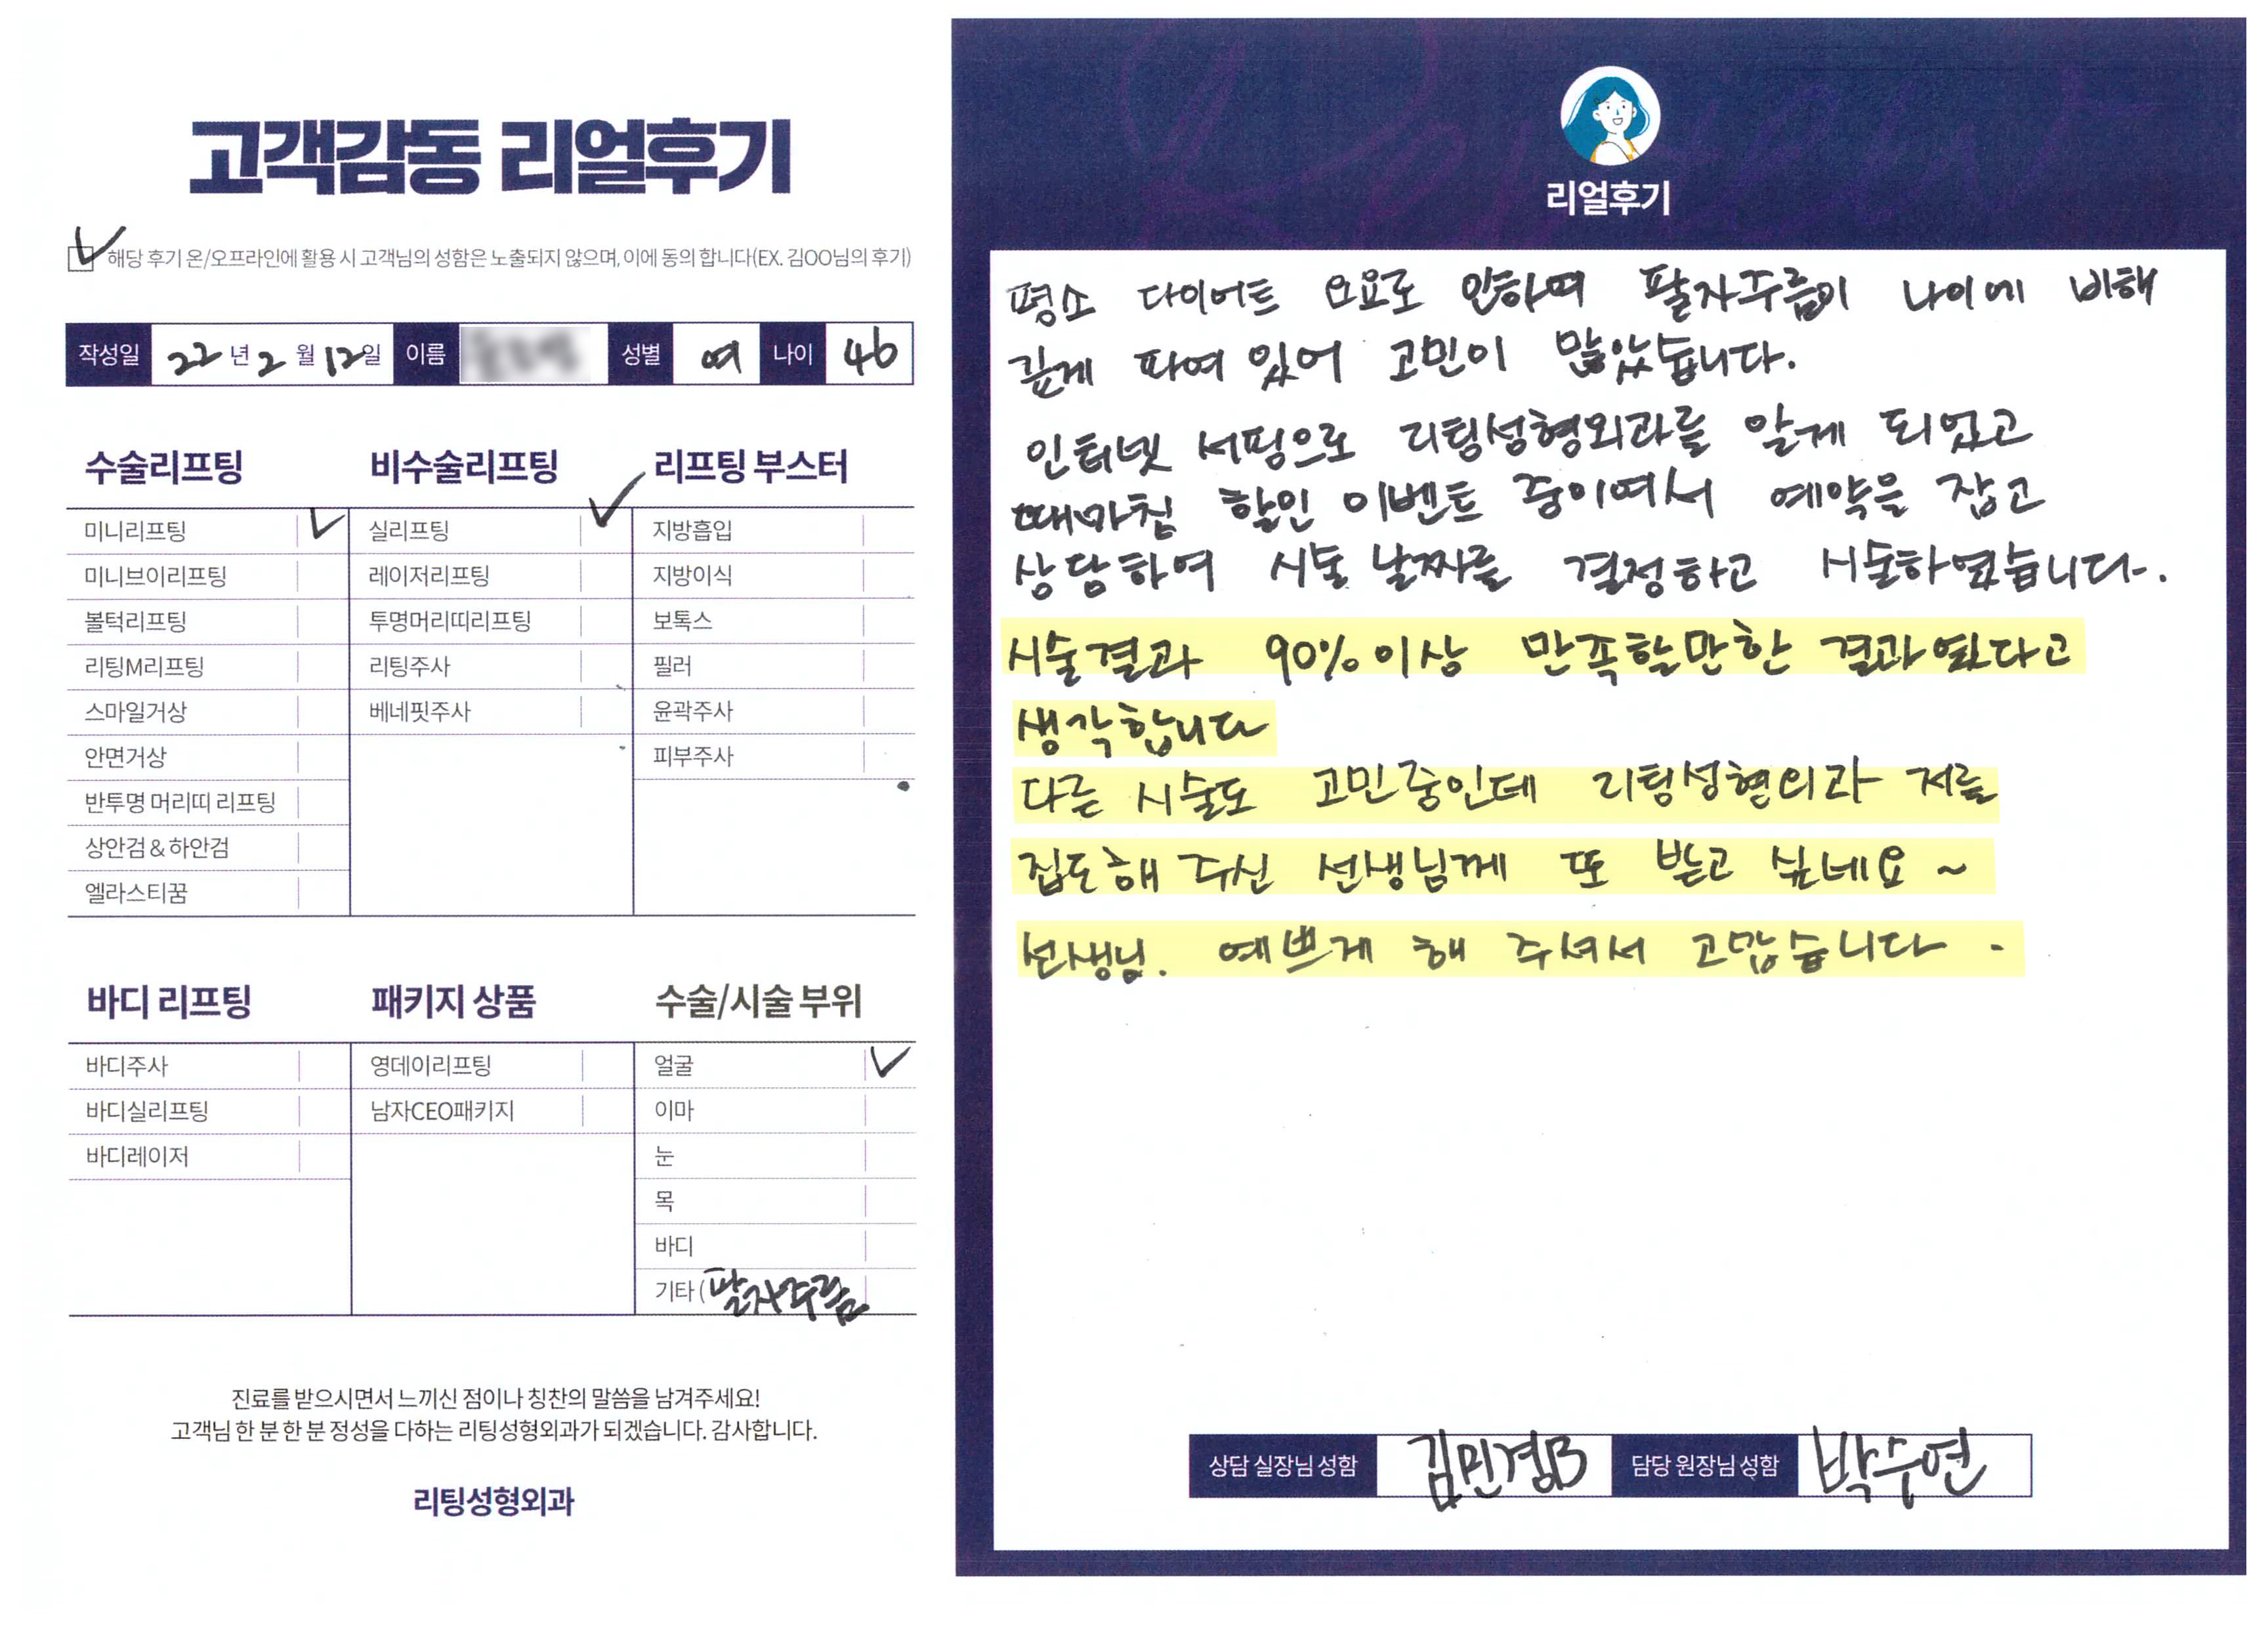 고객감동 리얼후기
해당 후기 온/오프라인에 활용 시 고객님의 성함은 노출되지 않으며, 이에 동의 합니다(EX. 김OO님의 후기)
작성일 22년 2월 12일 이름 성별 여 나이 46
수술리프팅
미니리프팅
미니브이리프팅
볼턱리프팅
리팅M리프팅
스마일거상
안면거상
반투명 머리띠 리프팅
상안검 & 하안검
엘라스티꿈
비수술리프팅
실리프팅
레이저리프팅
투명머리띠리프팅
리팅주사
베네핏주사
리프팅 부스터
지방흡입
지방이식
보톡스
필러
윤곽주사
피부주사
바디 리프팅
바디주사
바디실리프팅
바디레이저
패키지 상품
영데이리프팅
남자CEO패키지
수술/시술 부위
얼굴
이마
눈
목
바디
기타 (팔자주름
진료를 받으시면서 느끼신 점이나 칭찬의 말씀을 남겨주세요!
고객님 한 분 한 분 정성을 다하는 리팅성형외과가 되겠습니다. 감사합니다.
리팅성형외과
리얼후기
평소 다이어트 요요로 인하여 팔자주름이 나이에 비해
깊게 파여 있어 고민이 많았습니다.
인터넷 서핑으로 리팅성형외과를 알게 되었고
때마침 할인 이벤트 중이여서 예약을 잡고
상담하여 시술 날짜를 결정하고 시술하였습니다.
시술결과 90%이상 만족할만한 결과였다고
생각합니다
다른 시술도 고민중인데 리팅성형외과 저를
집도해 주신 선생님께 또 받고 싶네요~
선생님. 예쁘게 해 주셔서 고맙습니다.
상담 실장님 성함 김민경B 담당 원장님 성함 박수연